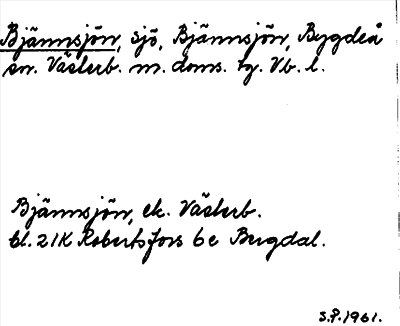 Bjännsjön, sjö, Bjännsjön, Bygdeå
sn. Västerb. m. doms. tg. Vb. l.
Bjännsjön, ek. Västerb.
bl. 21K Robertsfors 6e Bregdal.
S.P. 1961.